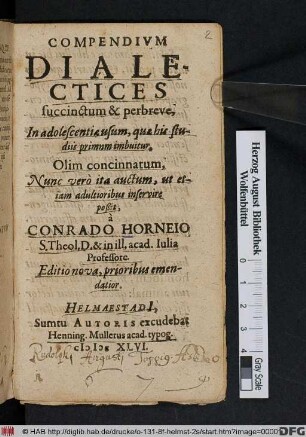 2
COMPENDIVM
DIALE-
CTICES
succinctum & perbreve,
In adolescentiæ usum, quæ his stu-
diis primum imbuitur,
Olim concinnatum,
Nunc verò ita auctum, ut et-
iam adultioribus inservire
possit,
à
CONRADO HORNEIO
S. Theol. D. & in ill. acad. Iulia
Professore.
Editio nova, prioribus emen-
datior.
HELMAESTADI,
Sumtu AUTORIS excudebat
Henning. Mullerus acad. typog.
cIɔ Iɔc XLVI.
Rudolphi Augusti
Herzog August Bibliothek
Wolfenbüttel
Gray Scale
© HAB http://diglib.hab.de/drucke/o-131-8f-helmst-2s/start.htm?image=0000
DFG